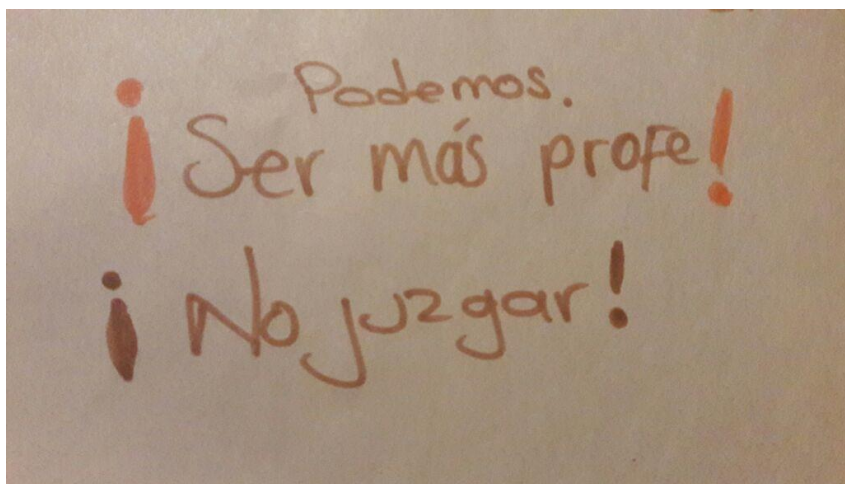 Podemos.
¡Ser más profe!
¡No juzgar!